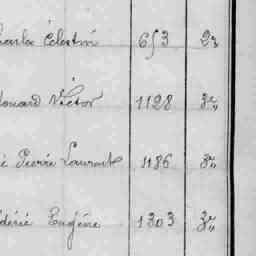 Charles Célestin 653 2e
Edouard Victor 1128 3e
Pierre Laurent 1186 3e
Eugène 1303 3e